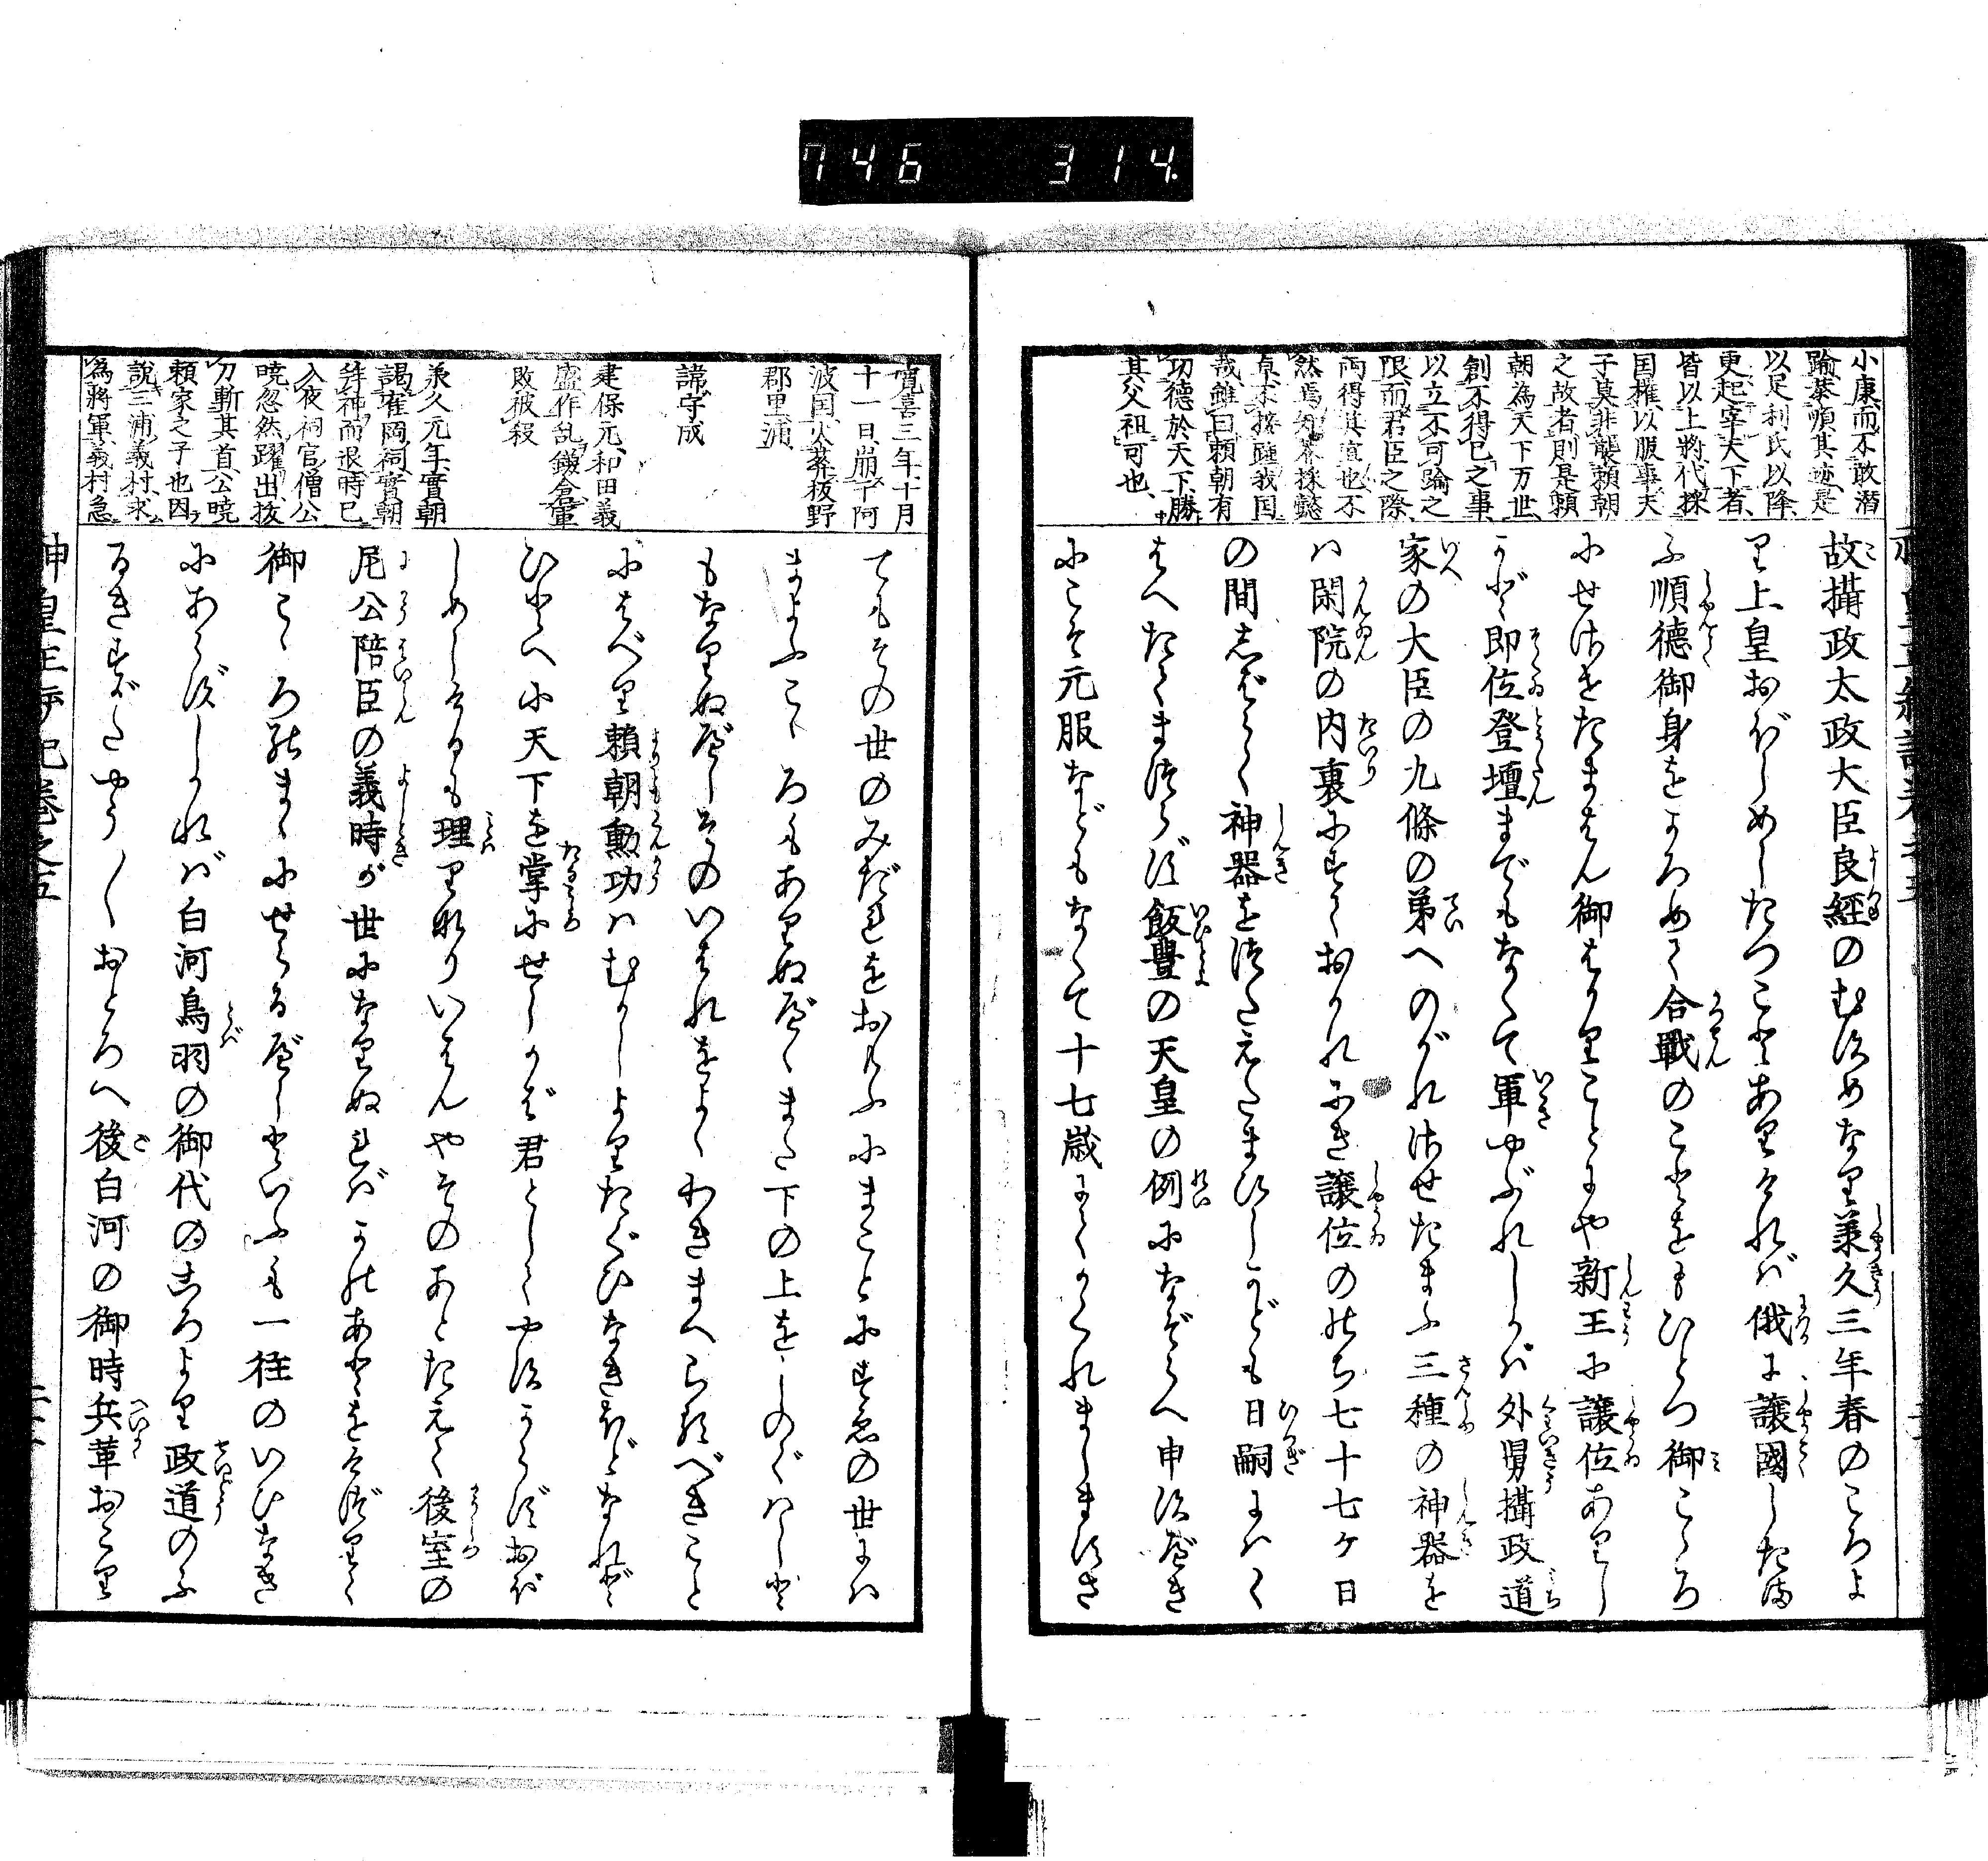 746 314
小康而不敢潛
踰恭順其迹是
以足利氏以降
更起宰天下者
皆以上將代操
国権以服事夫
子莫非襲頼朝
之故者則是頼
朝為天下万世
創不得已之事
以立不可踰之
限而君臣之際
両得其宜也不
然焉知莽操懿
卓不接踵我国
哉雖曰頼朝有
功德於天下勝
其父祖可也
故攝政太政大臣良経のむすめなり承久三年春のころよ
り上皇おぼしめしたつことありければ俄に譲國したま
ふ順徳御身をかろめて合戰のことをもひとつ御こゝろ
にせさせたまはん御はかりことにや新王に譲位ありし
かど即位登壇までもなくて軍やぶれしかば外舅攝政道
家の大臣の九條の第へのがれさせたまふ三種の神器を
ば閑院の内裏にすておかれにき譲位ののち七十七ケ日
の間しばらく神器をつたえたまひしかども日嗣にはく
はへたてまつらず飯豊の天皇の例になぞらへ申すべき
にこそ元服などもなくて十七歳にてかくれまします
寛喜三年十月
十一日崩于阿
波国火葬板野
郡里浦
諱守成
建保元和田義
盛作乱鎌倉軍
敗被殺
承久元年實朝
謁隺岡祠實朝
拝神而退時已
入夜祠官僧公
曉忽然躍出抜
刀斬其首公曉
頼家之子也因
說三浦義村求
為將軍義村急
てもその世のみだれをおもふにまことにすゑの世には
まよふこゝろもありぬべくまた下の上をしのぐはしと
もなりぬべしそのいはれをよくわきまへらるべきこと
にはべり頼朝勲功はむかしよりたぐひなきほどなれど
ひとへに天下を掌にせしかば君としてやすからずおぼ
しめしけるも理りなりいはんやそのあとたえて後室の
尼公陪臣の義時が世になりぬればかのあとをけづりて
御こゝろのまゝにせらるべしといふも一往のいひなき
にあらずしかれば白河鳥羽の御代のころより政道のふ
るきすがたやう〳〵おとろへ後白河の御時兵革おこり
神皇正統記巻之五